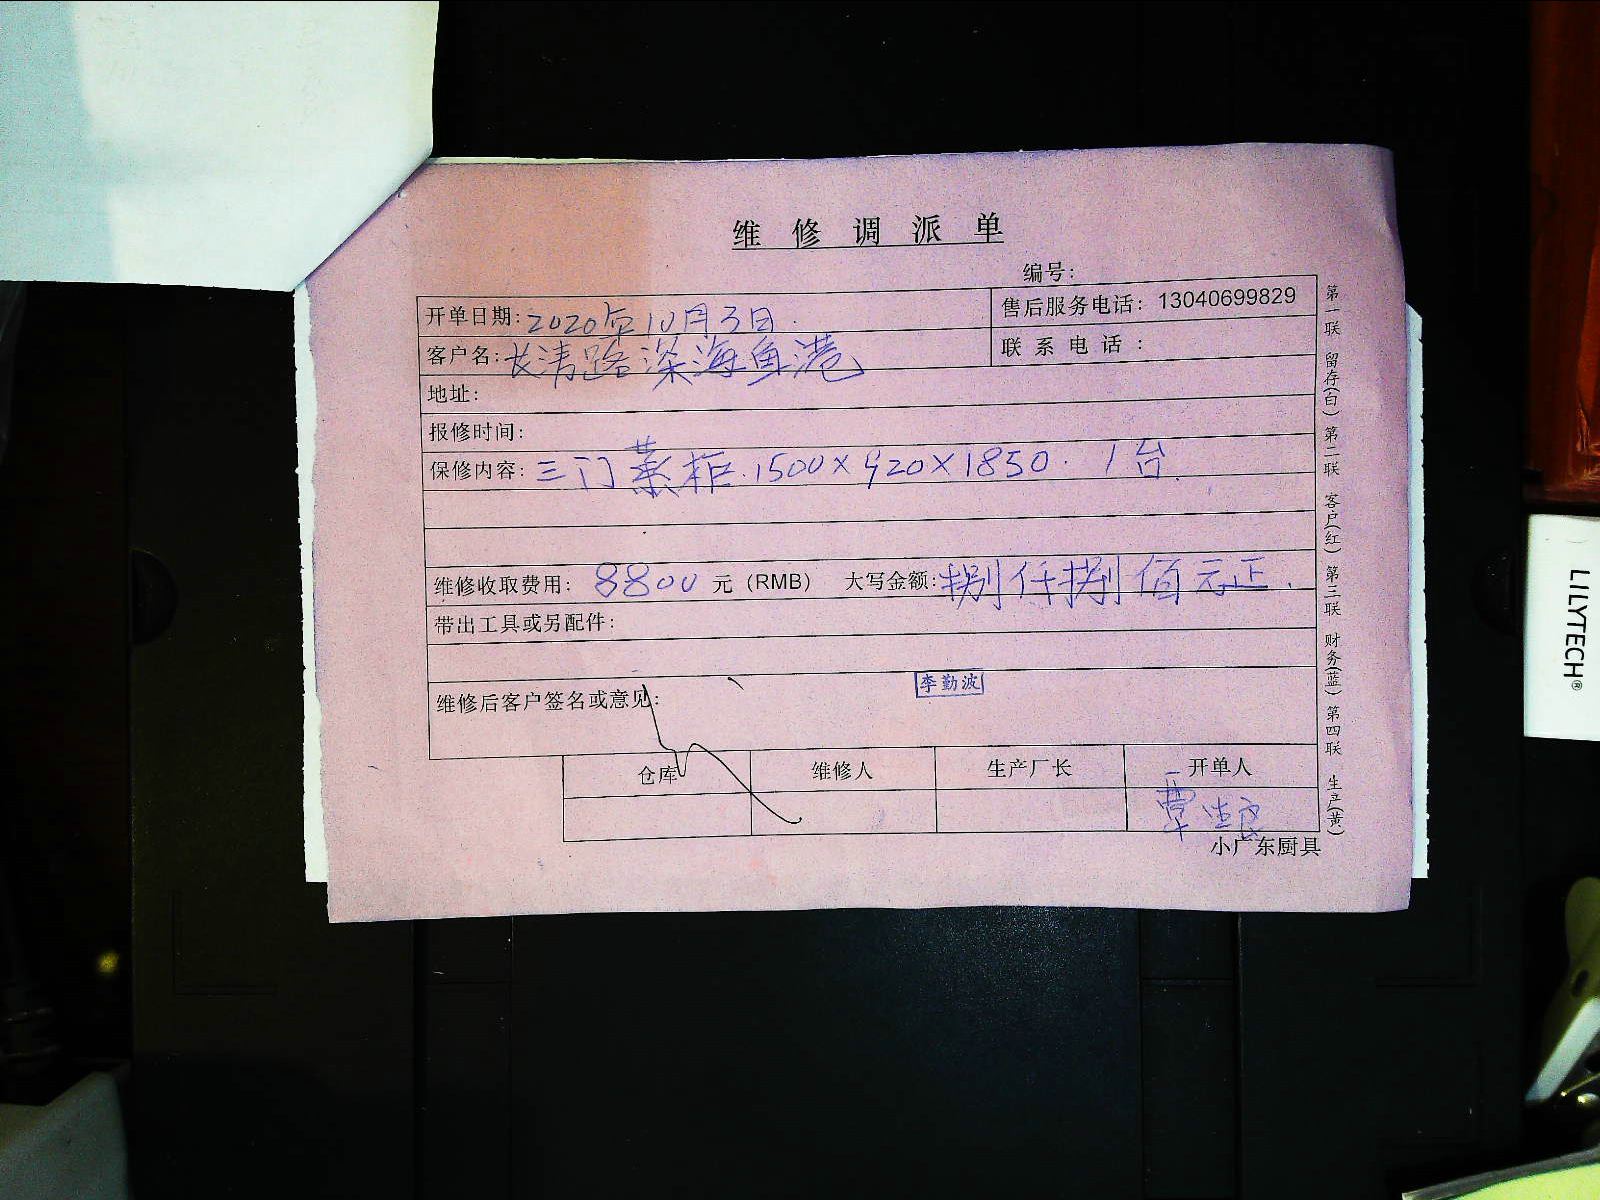 维修调派单
编号:
开单日期: 2020年10月3日.
售后服务电话: 13040699829
客户名: 长清路深海鱼港
联系电话:
地址:
报修时间:
保修内容: 三门蒸柜.1500×920×1850. 1台.
维修收取费用: 8800 元 (RMB) 大写金额: 捌仟捌佰元正.
带出工具或另配件:
李勤波
维修后客户签名或意见:
仓库 维修人 生产厂长 开单人
覃
小广东厨具
第一联 留存(白) 第二联 客户(红) 第三联 财务(蓝) 第四联 生产(黄)
LILYTECH®